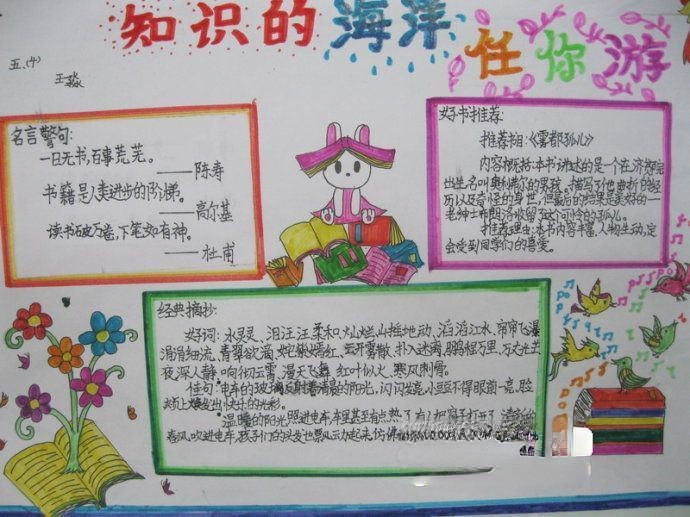 知识的海洋
任你游
五、(4)
王淼
名言警句:
一日无书,百事荒芜。
——陈寿
书籍是人类进步的阶梯。
——高尔基
读书破万卷,下笔如有神。
——杜甫
好书推荐:
推荐书目:《雾都孤儿》
内容概括:本书讲述的是一个在济贫院
出生名叫奥利弗尔的男孩。描写了他曲折的经
历以及奇怪的身世,但最后的结果是美好的一
老绅士布朗洛收留了这个可怜的孤儿。
推荐理由:本书内容丰富,人物生动,定
会受到同学们的喜爱。
经典摘抄:
好词:水灵灵、泪汪汪、柔和、灿烂、山摇地动、滔滔江水、帘帘飞瀑
涓涓细流、青翠欲滴、姹紫嫣红、云开雾散、扑入迷离、鹏程万里、万丈光芒
夜深人静、响彻云霄、漫天飞舞、红叶似火、寒风刺骨。
佳句:电车的玻璃反射着清晨的阳光,闪闪发亮,小豆豆不得眼前一亮,脸
颊上焕发出快乐的光彩。
温暖的阳光照进电车,车里甚至有点热了,有人把窗子打开了,清新的
春风,吹进电车,孩子们的头发也飘